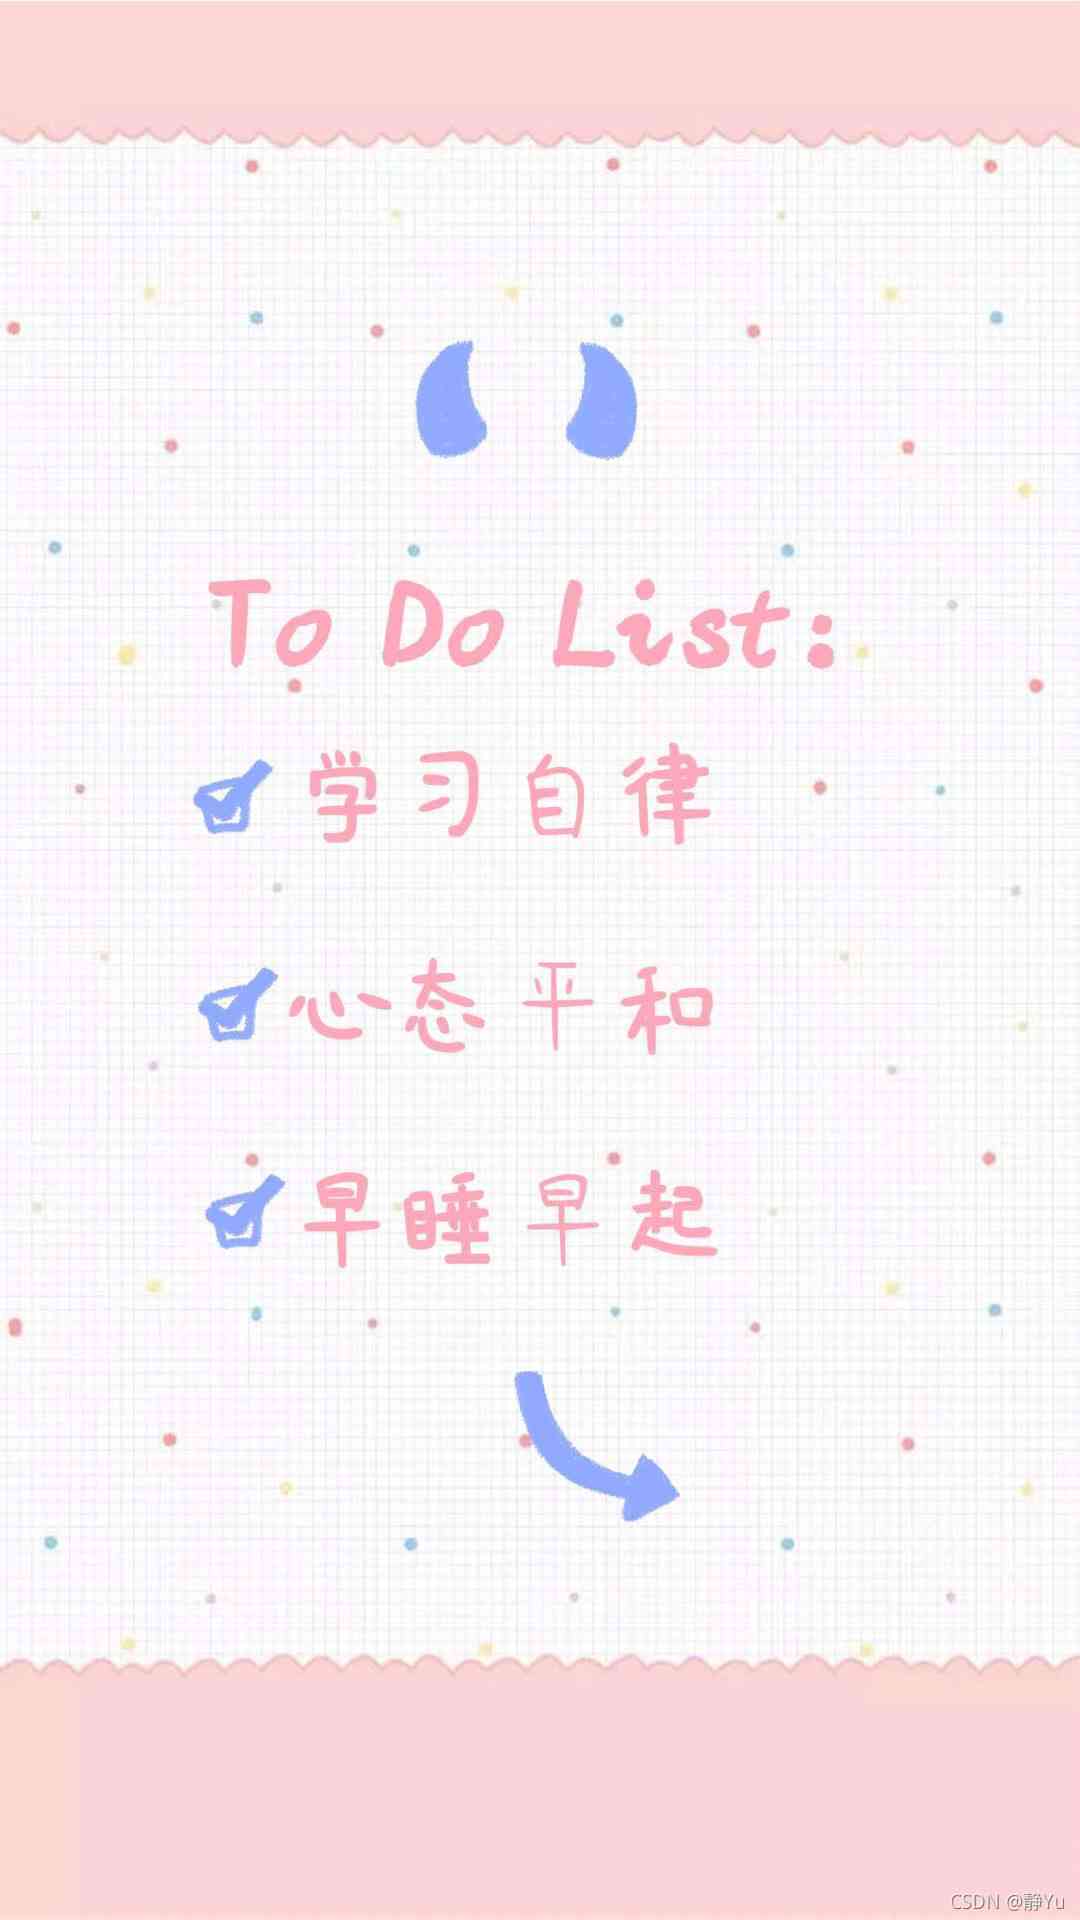 To Do List:
学习自律
心态平和
早睡早起
CSDN @静Yu